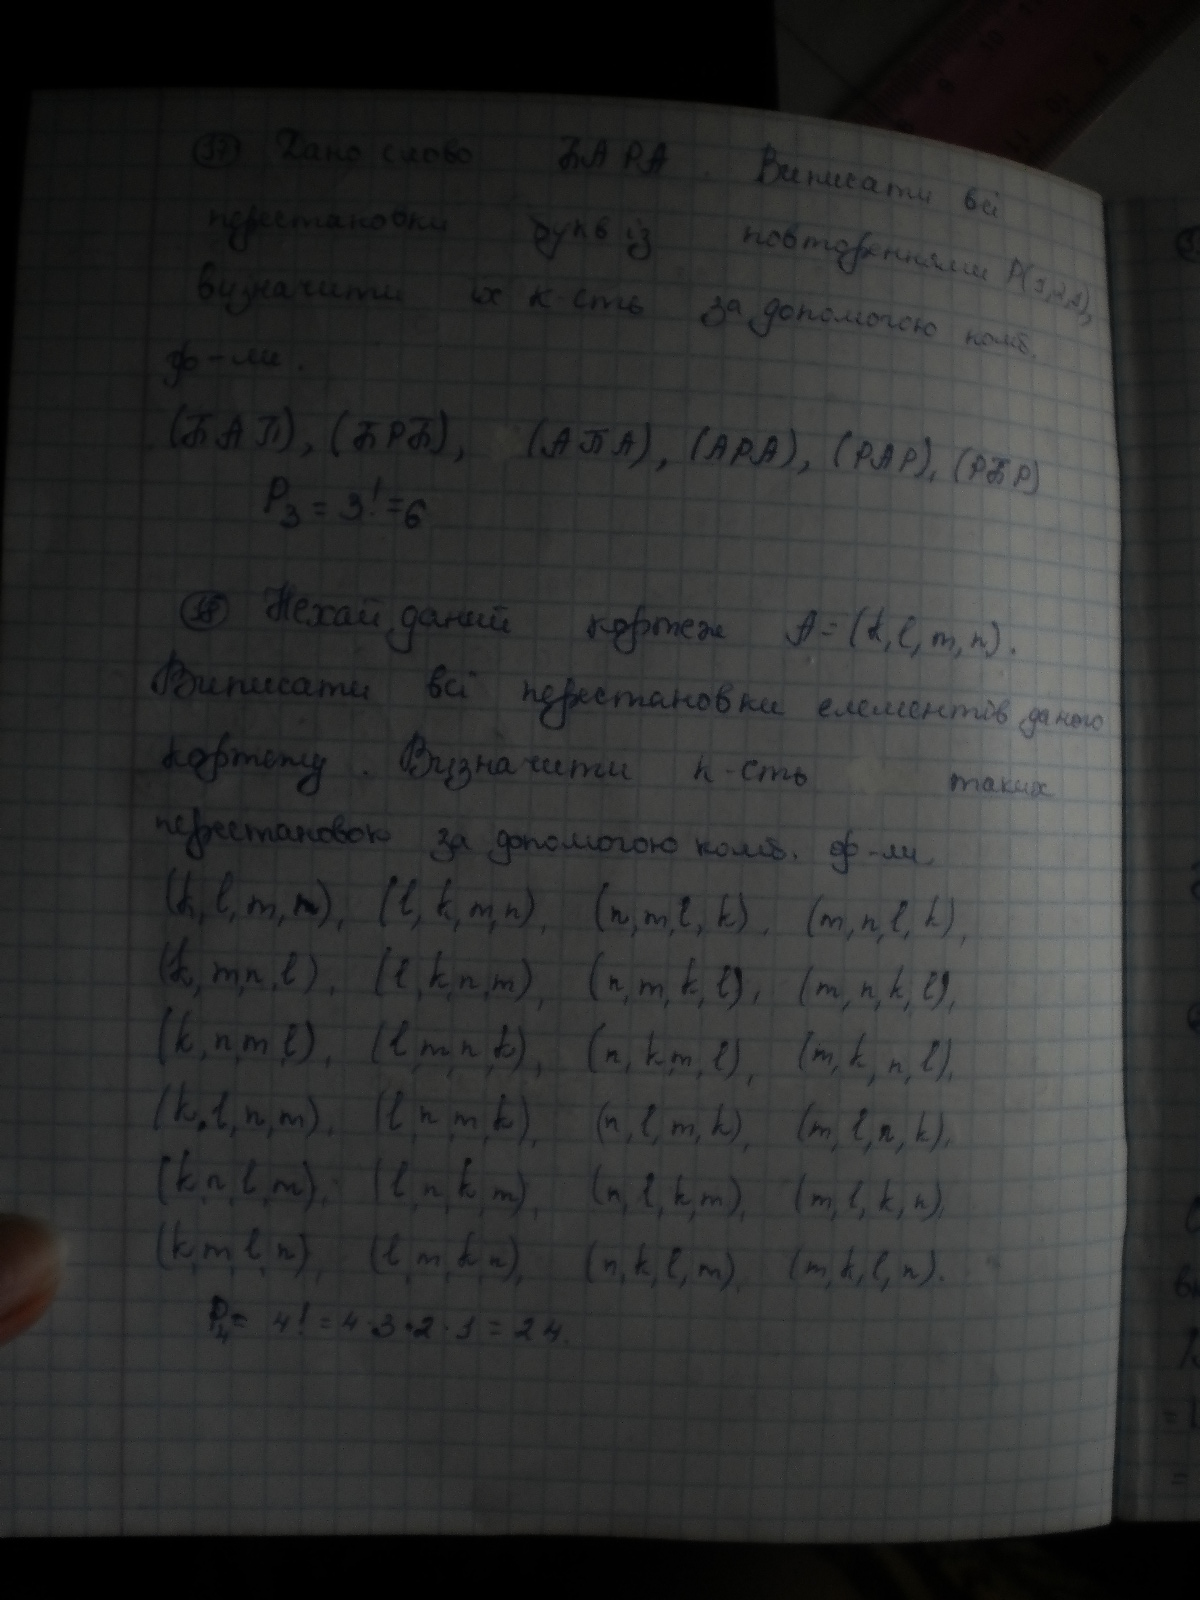 37 Дано слово БАРА. Виписати всі
перестановки букв із повтореннями P(1,2,1),
визначити їх к-сть за допомогою комб.
ф-ли.
(БАБ), (БРБ), (АБА), (АРА), (РАР), (РБР)
P₃ = 3! = 6
38 Нехай даний кортеж A = (k, l, m, n).
Виписати всі перестановки елементів даного
кортежу. Визначити к-сть таких
перестановок за допомогою комб. ф-ли.
(k, l, m, n), (l, k, m, n), (n, m, l, k), (m, n, l, k),
(k, m, n, l), (l, k, n, m), (n, m, k, l), (m, n, k, l),
(k, n, m, l), (l, m, n, k), (n, k, m, l), (m, k, n, l),
(k, l, n, m), (l, n, m, k), (n, l, m, k), (m, l, n, k),
(k, n, l, m), (l, n, k, m), (n, l, k, m), (m, l, k, n),
(k, m, l, n), (l, m, k, n), (n, k, l, m), (m, k, l, n).
P₄ = 4! = 4·3·2·1 = 24.